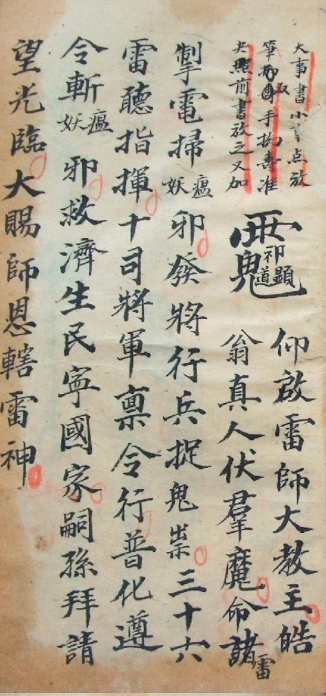 大事書小点放
手
照前書放之又加
仰啟雷師大教主皓
翁真人伏羣魔命諸雷
顯
祁道
掣電掃瘟妖邪發將行兵捉鬼祟三十六
雷聽指揮十司將軍稟令行普化遵
令斬瘟妖邪救濟生民寧國家嗣孫拜請
望光臨大賜師恩轄雷神